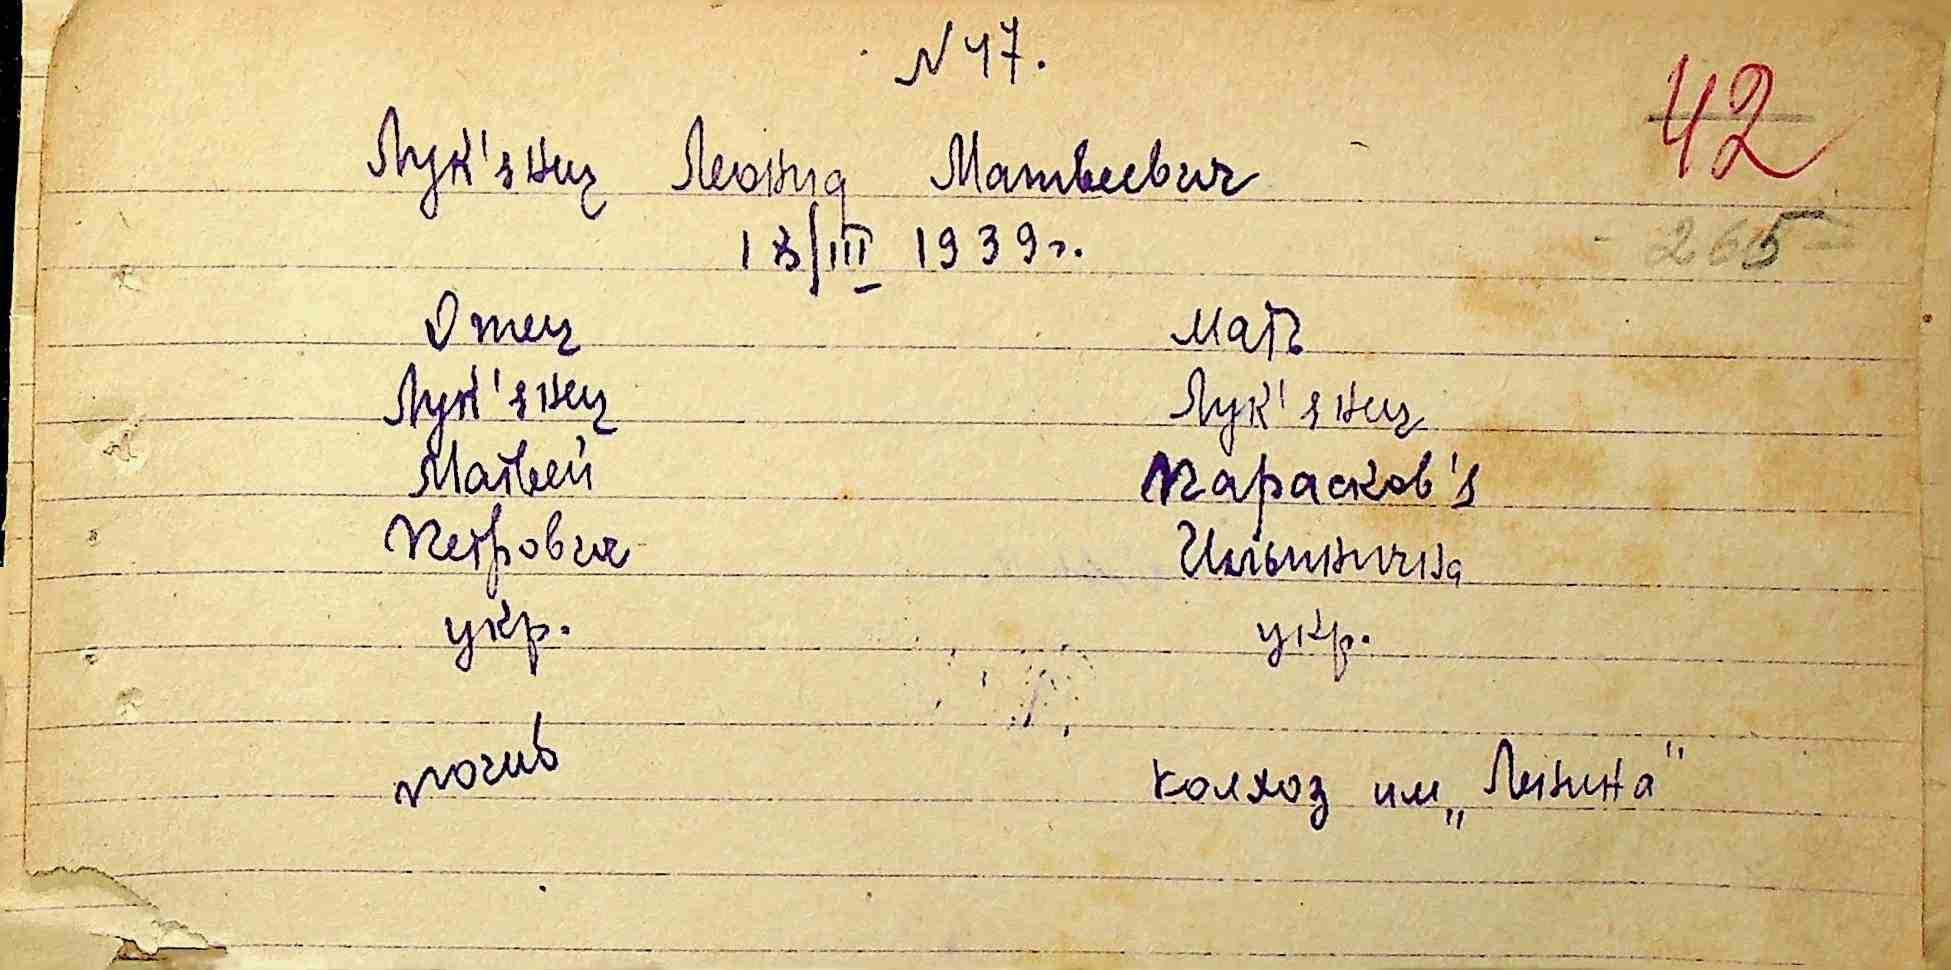 N 47.
42
Лук'янец Леонид Матвеевич
265
13/III 1939 г.
Отец Мать
Лук'янец Лук'янец
Матвей Парасков'я
Петрович Ильинична
укр. укр.
погиб колхоз им „Ленина"